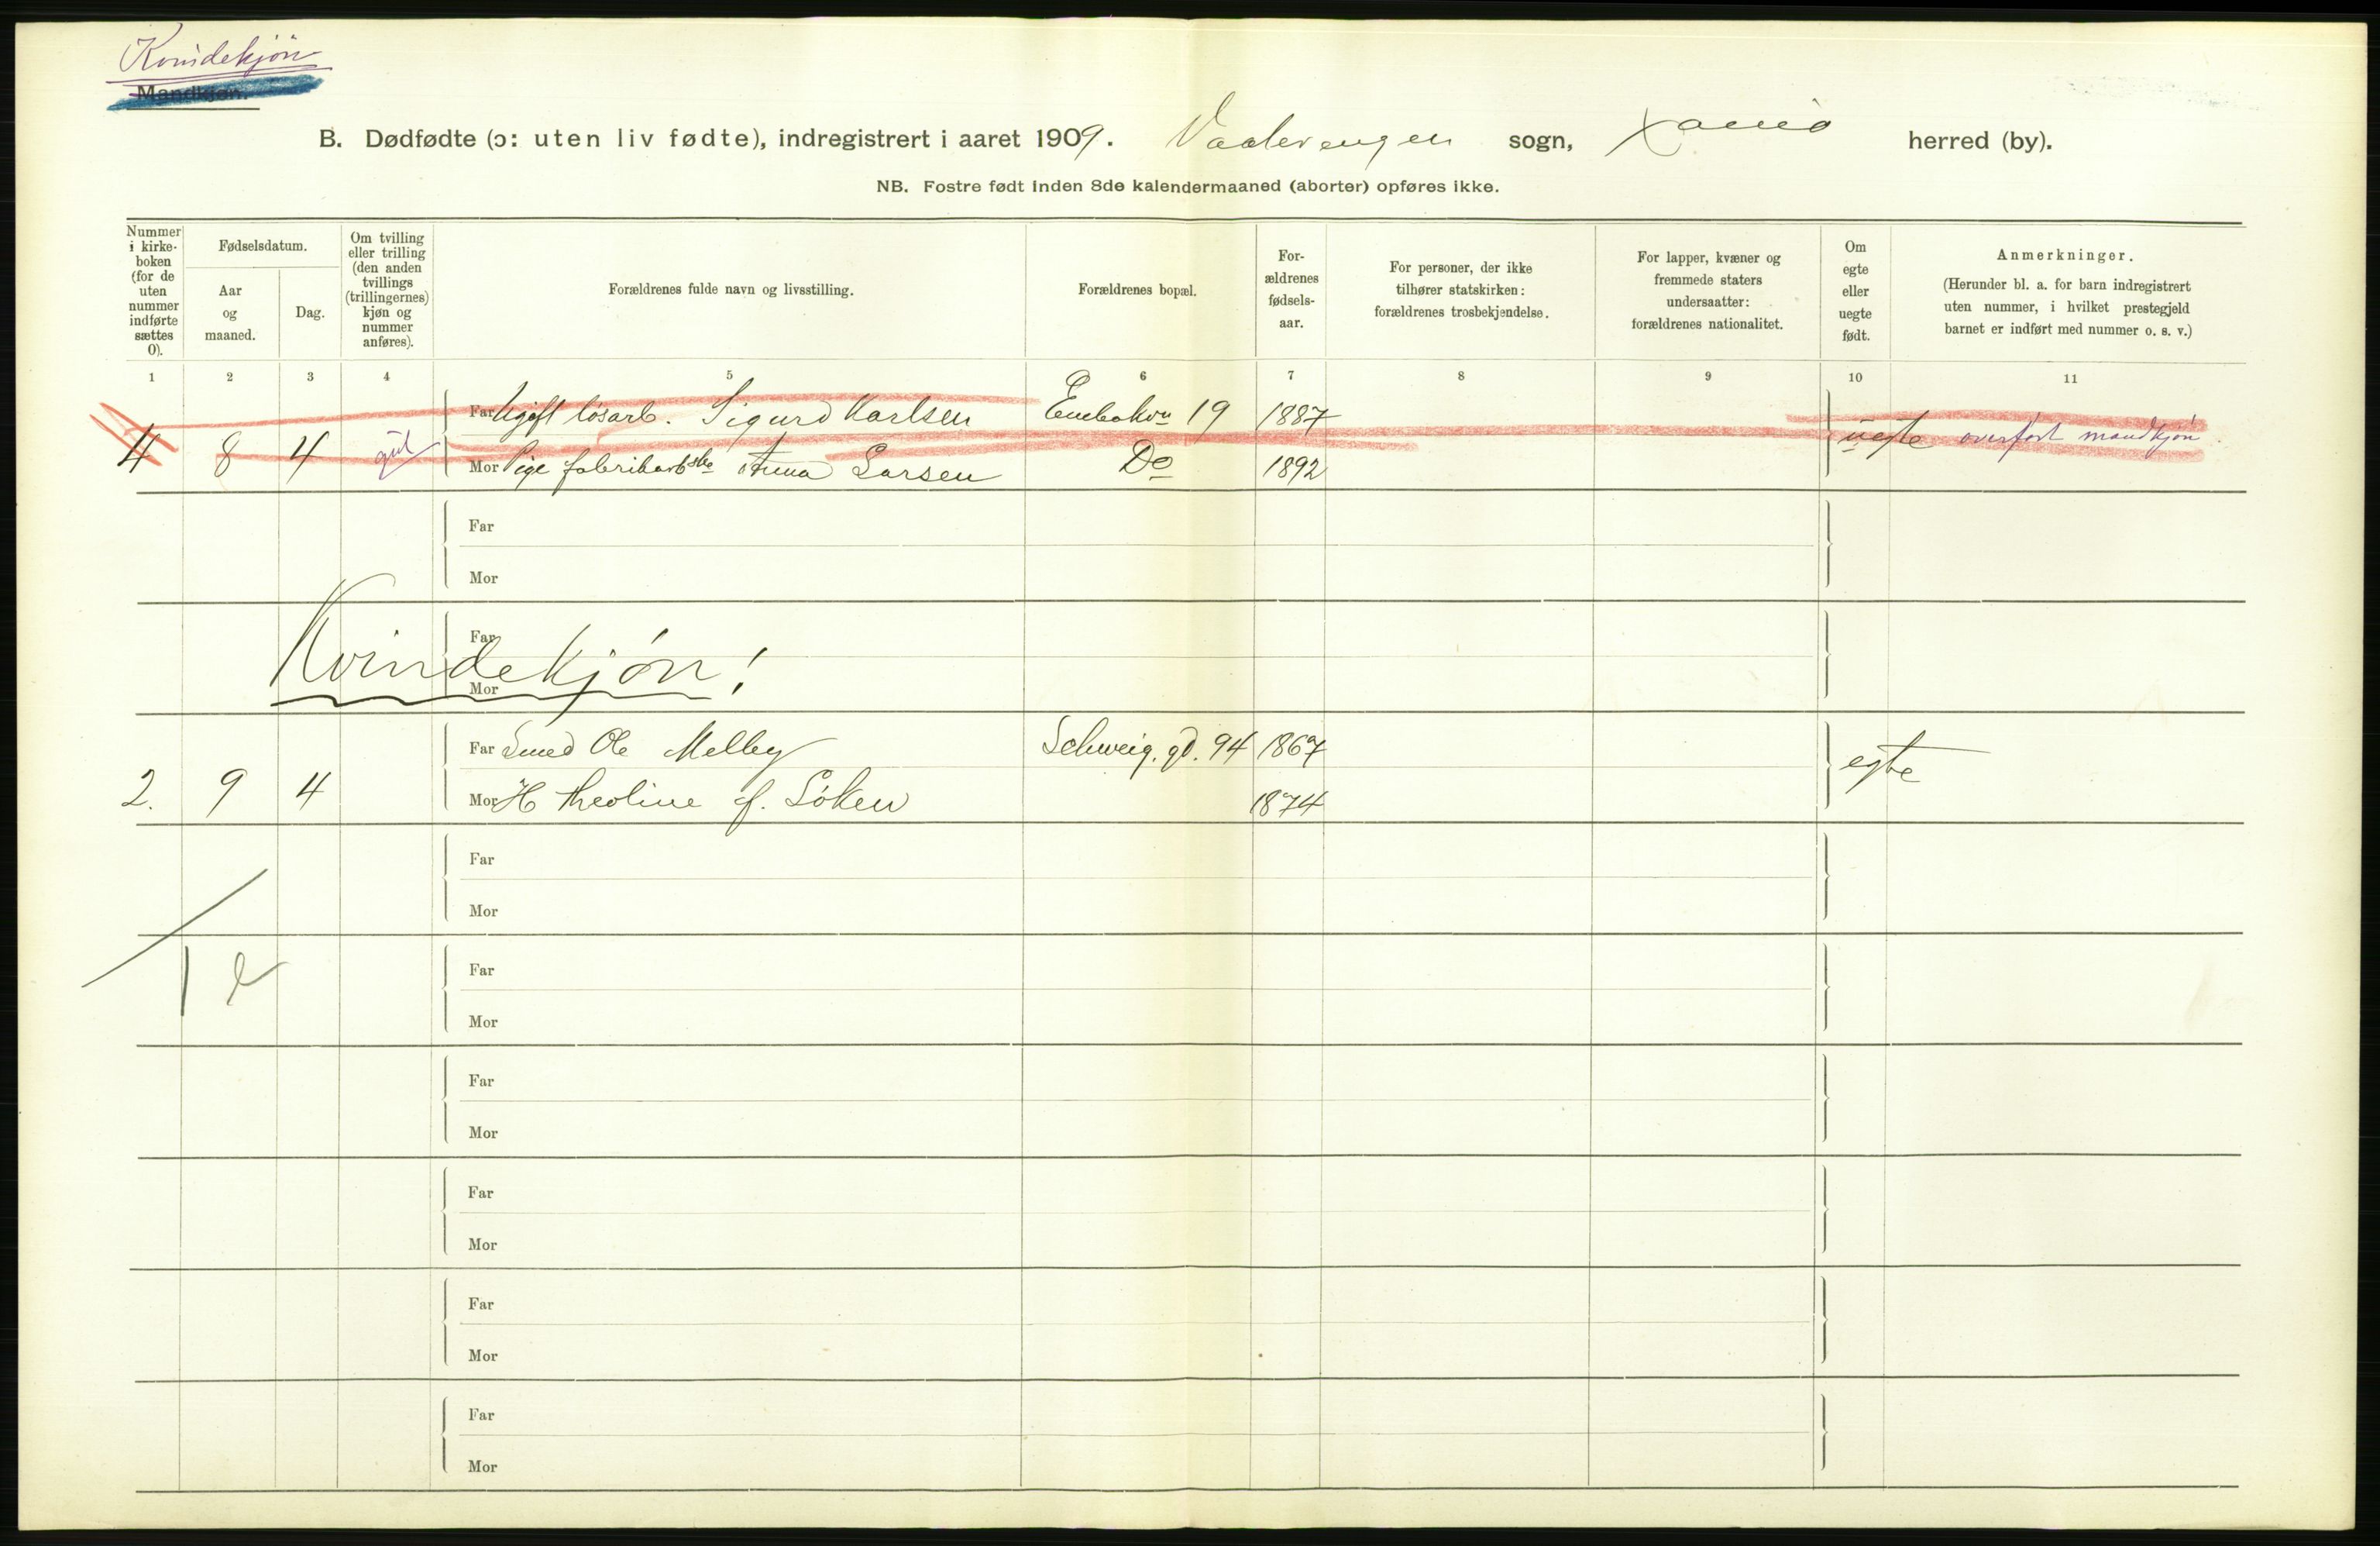 Kvindekjön
Mandkjøn.
B. Dødfødte (ɔ: uten liv fødte), indregistrert i aaret 1909. Vaalerengen sogn, Xania herred (by).
NB. Fostre født inden 8de kalendermaaned (aborter) opføres ikke.
Nummer i kirke-boken (for de uten nummer indførte sættes 0).
Fødselsdatum.
Aar og maaned.
Dag.
Om tvilling eller trilling (den anden tvillings (trillingernes) kjøn og nummer anføres).
Forældrenes fulde navn og livsstilling.
Forældrenes bopæl.
For-ældrenes fødsels-aar.
For personer, der ikke tilhører statskirken: forældrenes trosbekjendelse.
For lapper, kvæner og fremmede staters undersaatter: forældrenes nationalitet.
Om egte eller uegte født.
Anmerkninger.
(Herunder bl. a. for barn indregistrert uten nummer, i hvilket prestegjeld barnet er indført med nummer o. s. v.)
1 2 3 4 5 6 7 8 9 10 11
Far Ugift løsarb. Sigurd Karlsen Enebakvn 19 1887
4 8 4 gut uegte overført mandkjøn
Mor Pige fabrikarbske Anna Larsen Do 1892
Far
Mor
Far
Kvindekjøn!
Mor
Far Smed Ole Melby Schweig. gd. 94 1867
2. 9 4 egte
Mor H Theoline f. Løken 1874
Far
Mor
Far
1 e
Mor
Far
Mor
Far
Mor
Far
Mor
Far
Mor